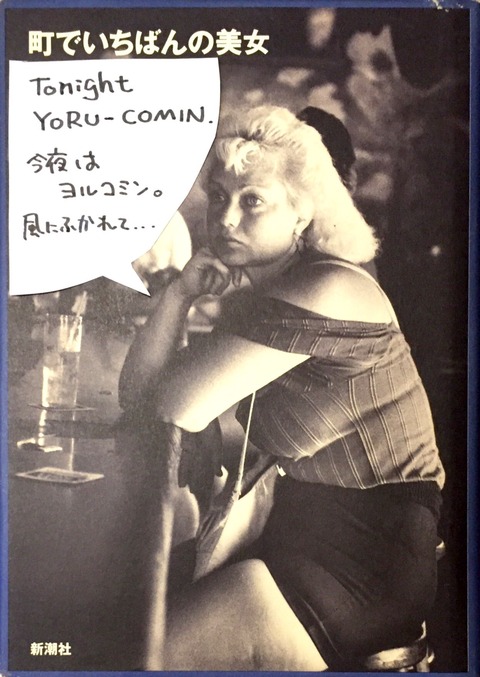 町でいちばんの美女
Tonight
YORU-COMIN.
今夜は
ヨルコミン。
風にふかれて...
新潮社